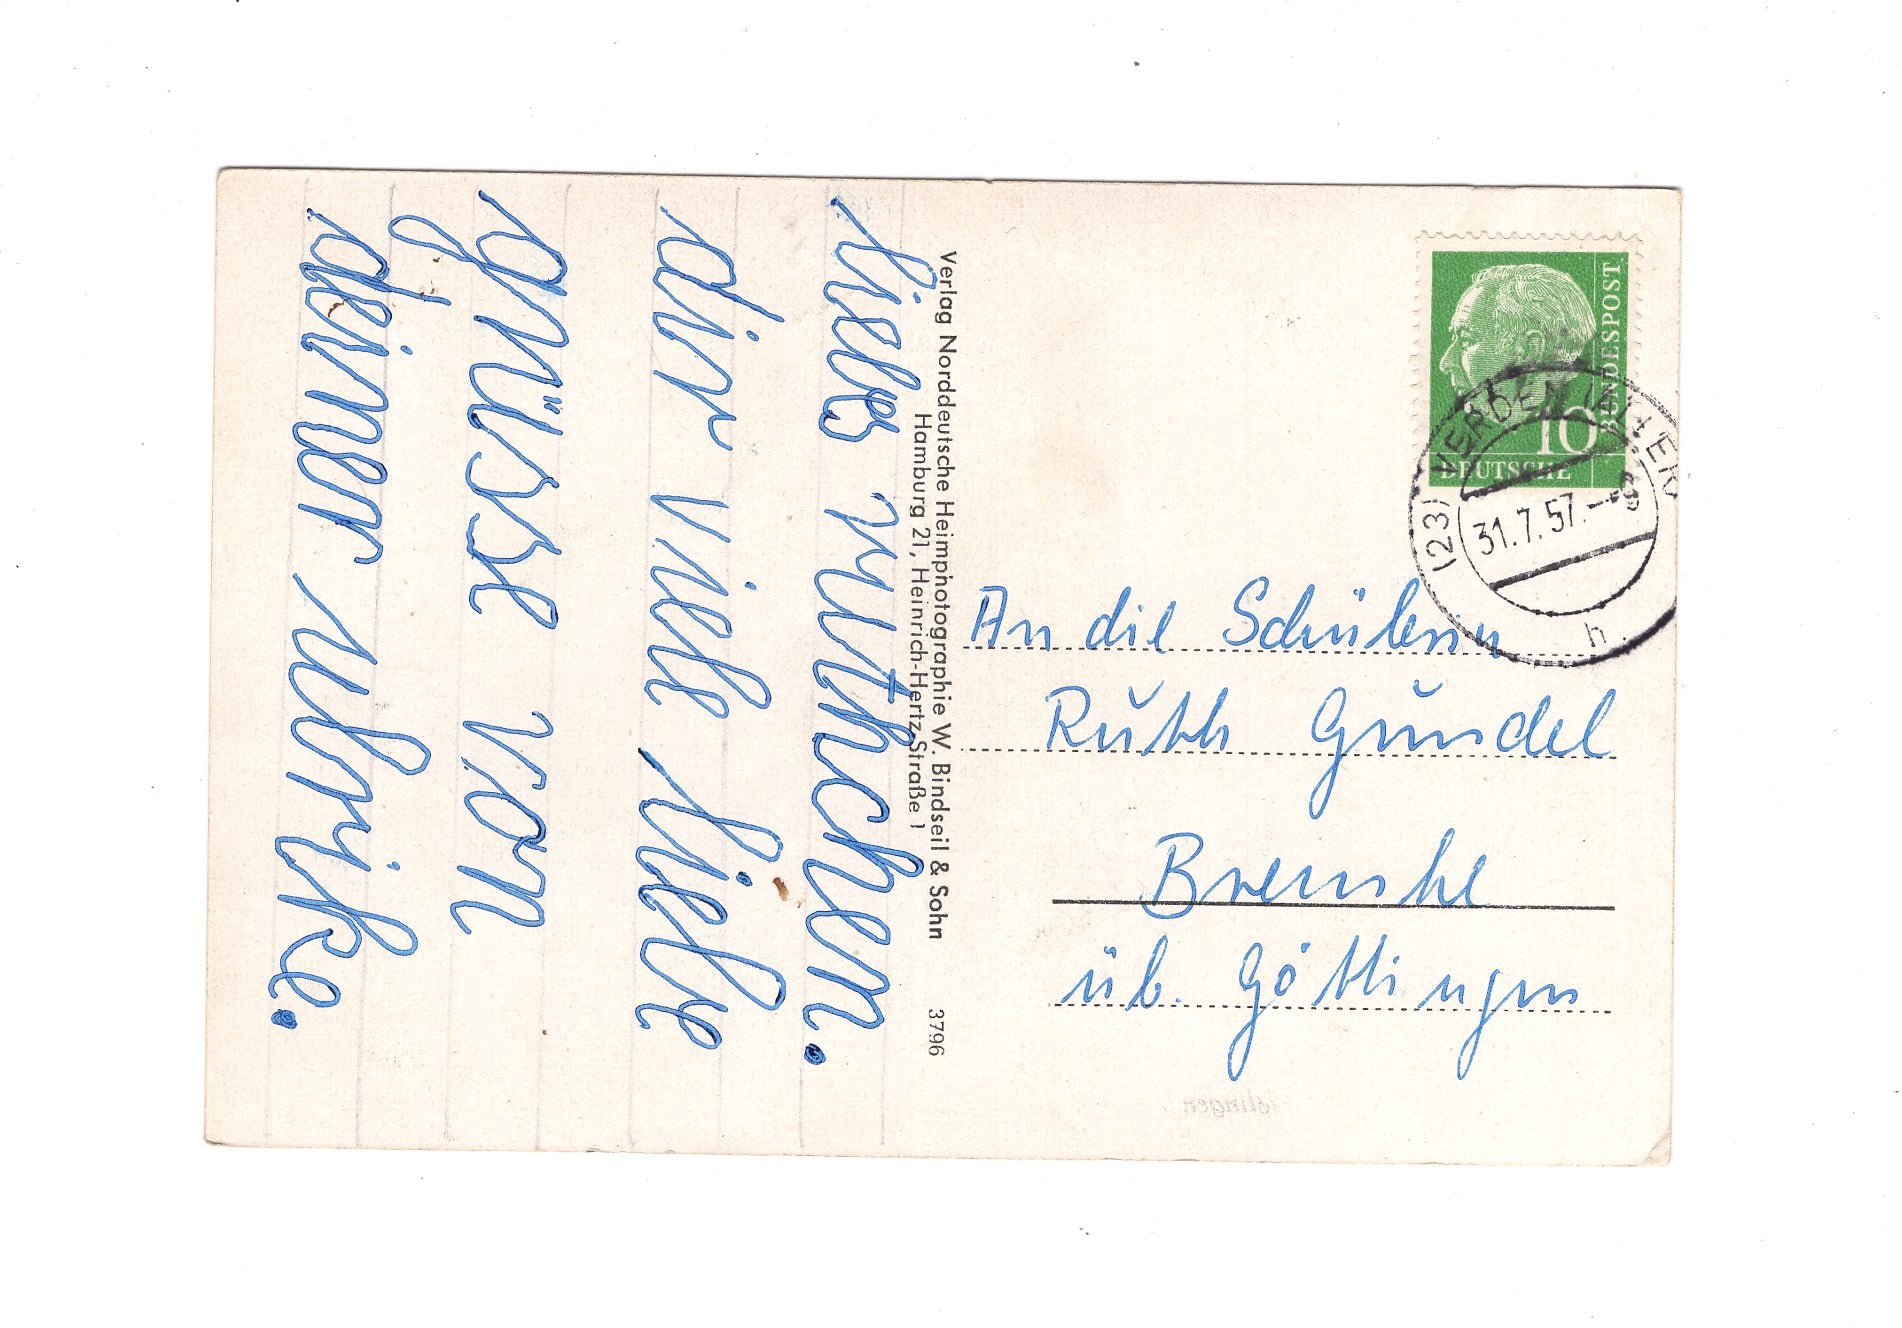 liebes ruthchen.
dir viele liebe
grüsse von
deiner ulrike.
Verlag Norddeutsche Heimphotographie W. Bindseil & Sohn
Hamburg 21, Heinrich-Hertz-Straße 1
3796
BUNDESPOST
10
DEUTSCHE
(23) VERDEN (ALLER)
31.7.57.-
h
An die Schülerin
Ruth Gundel
Bremke
üb. Göttingen